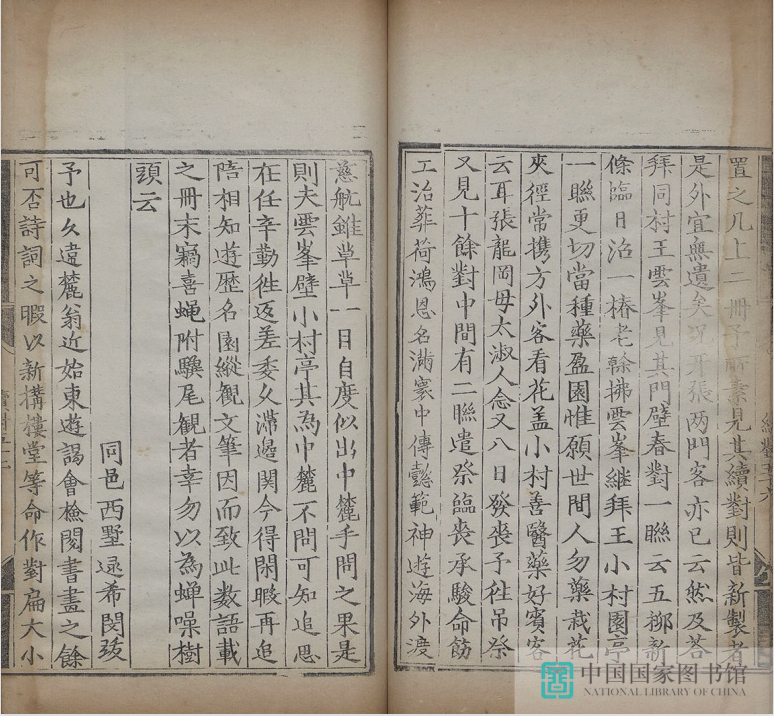 置之几上一冊予所素見其續對則皆新製者
是外宜無遺矣況开張两門客亦已云然及荅
拜同村王雲峯見其門壁春對一聯云五柳新
條臨日治一椿老榦拂雲峯継拜王小村園亭
一聯更切當種藥盈園惟願世間人勿藥栽花
夾徑常携方外客看花盖小村善醫藥好賓客
云耳張龍岡母太淑人念又八日發喪予徃吊祭
又見十餘對中間有二聯遣祭臨喪承駿命節
工治葬荷鴻恩名滿寰中傳懿範神逰海外渡
慈航雖草草一日自度似出中麓手問之果是
則夫雲峯壁小村亭其為中麓不問可知追思
在任辛勤徃返差委久滯邉関今得閑暇再追
陪相知遊歴名園縱観文筆因而致此数語載
之冊末竊喜蝇附驥尾観者幸勿以為蝉噪樹
頭云
同邑西墅逯希閔跋
予也久違麓翁近始東遊謁會檢閱書畫之餘
可否詩詞之暇以新搆樓堂等命作對扁大小
中国国家图书馆
NATIONAL LIBRARY OF CHINA